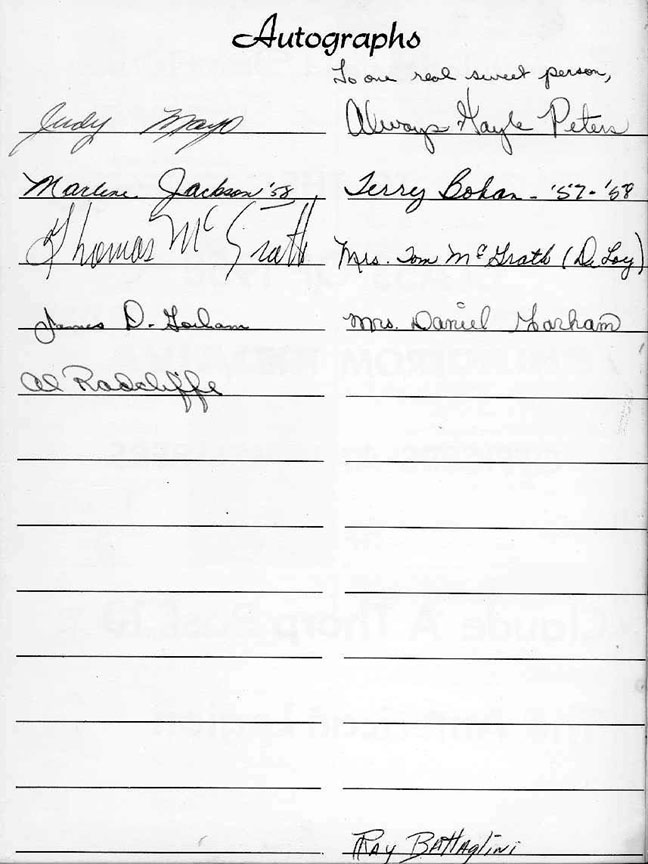 Autographs
To one real sweet person,
Judy Mayo
Always Gayle Peters
Marlene Jackson '58
Terry Bohan - '57-'58
Thomas McGrath
Mrs. Tom McGrath (DeLoy)
James D. Gorham
Mrs. Daniel Gorham
Al Radcliffe
Ray Battaglini
Claude A Thorp Post 19
The American Legion